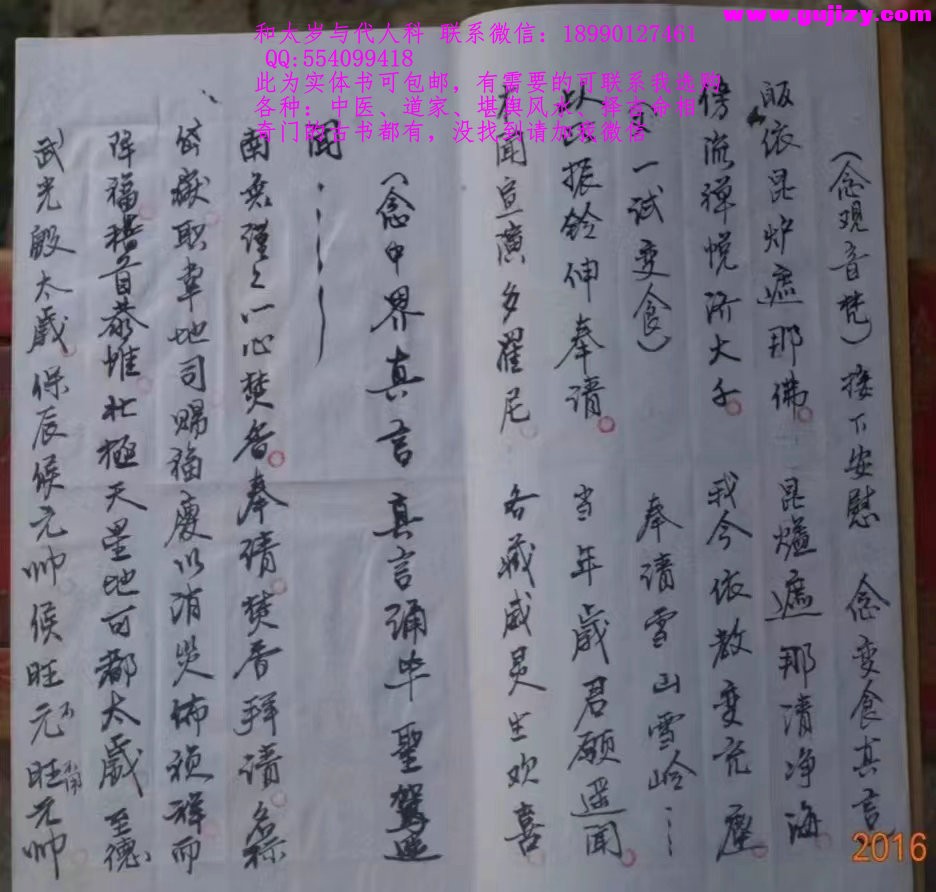 www.gujizy.com
和太岁与代人科 联系微信：18990127461
QQ:554099418
此为实体书可包邮，有需要的可联系我选购
各种：中医、道家、堪舆风水、择吉命相
奇门的古书都有，没找到请加我微信
（念观音梵）接下安慰 念变食真言
皈依昆炉遮那佛 昆炉遮那清净海
流禅悦济大千 我今依教变充塵
一试变食） 奉请雪山雪岭
以此振铃伸奉请 当年歲君願遥闻
闻宣演多羅尼 各藏威灵生欢喜
（念中界真言 真言诵毕 聖駕遥
闻
南无谨之一心焚香奉请焚香拜请名称
岱嶽职掌地司赐福慶以消災佈祯祥而
降福稽首恭惟北極天星地司都太歲至德
武光殿太歲保辰候元帅候旺元旺元帅
2016